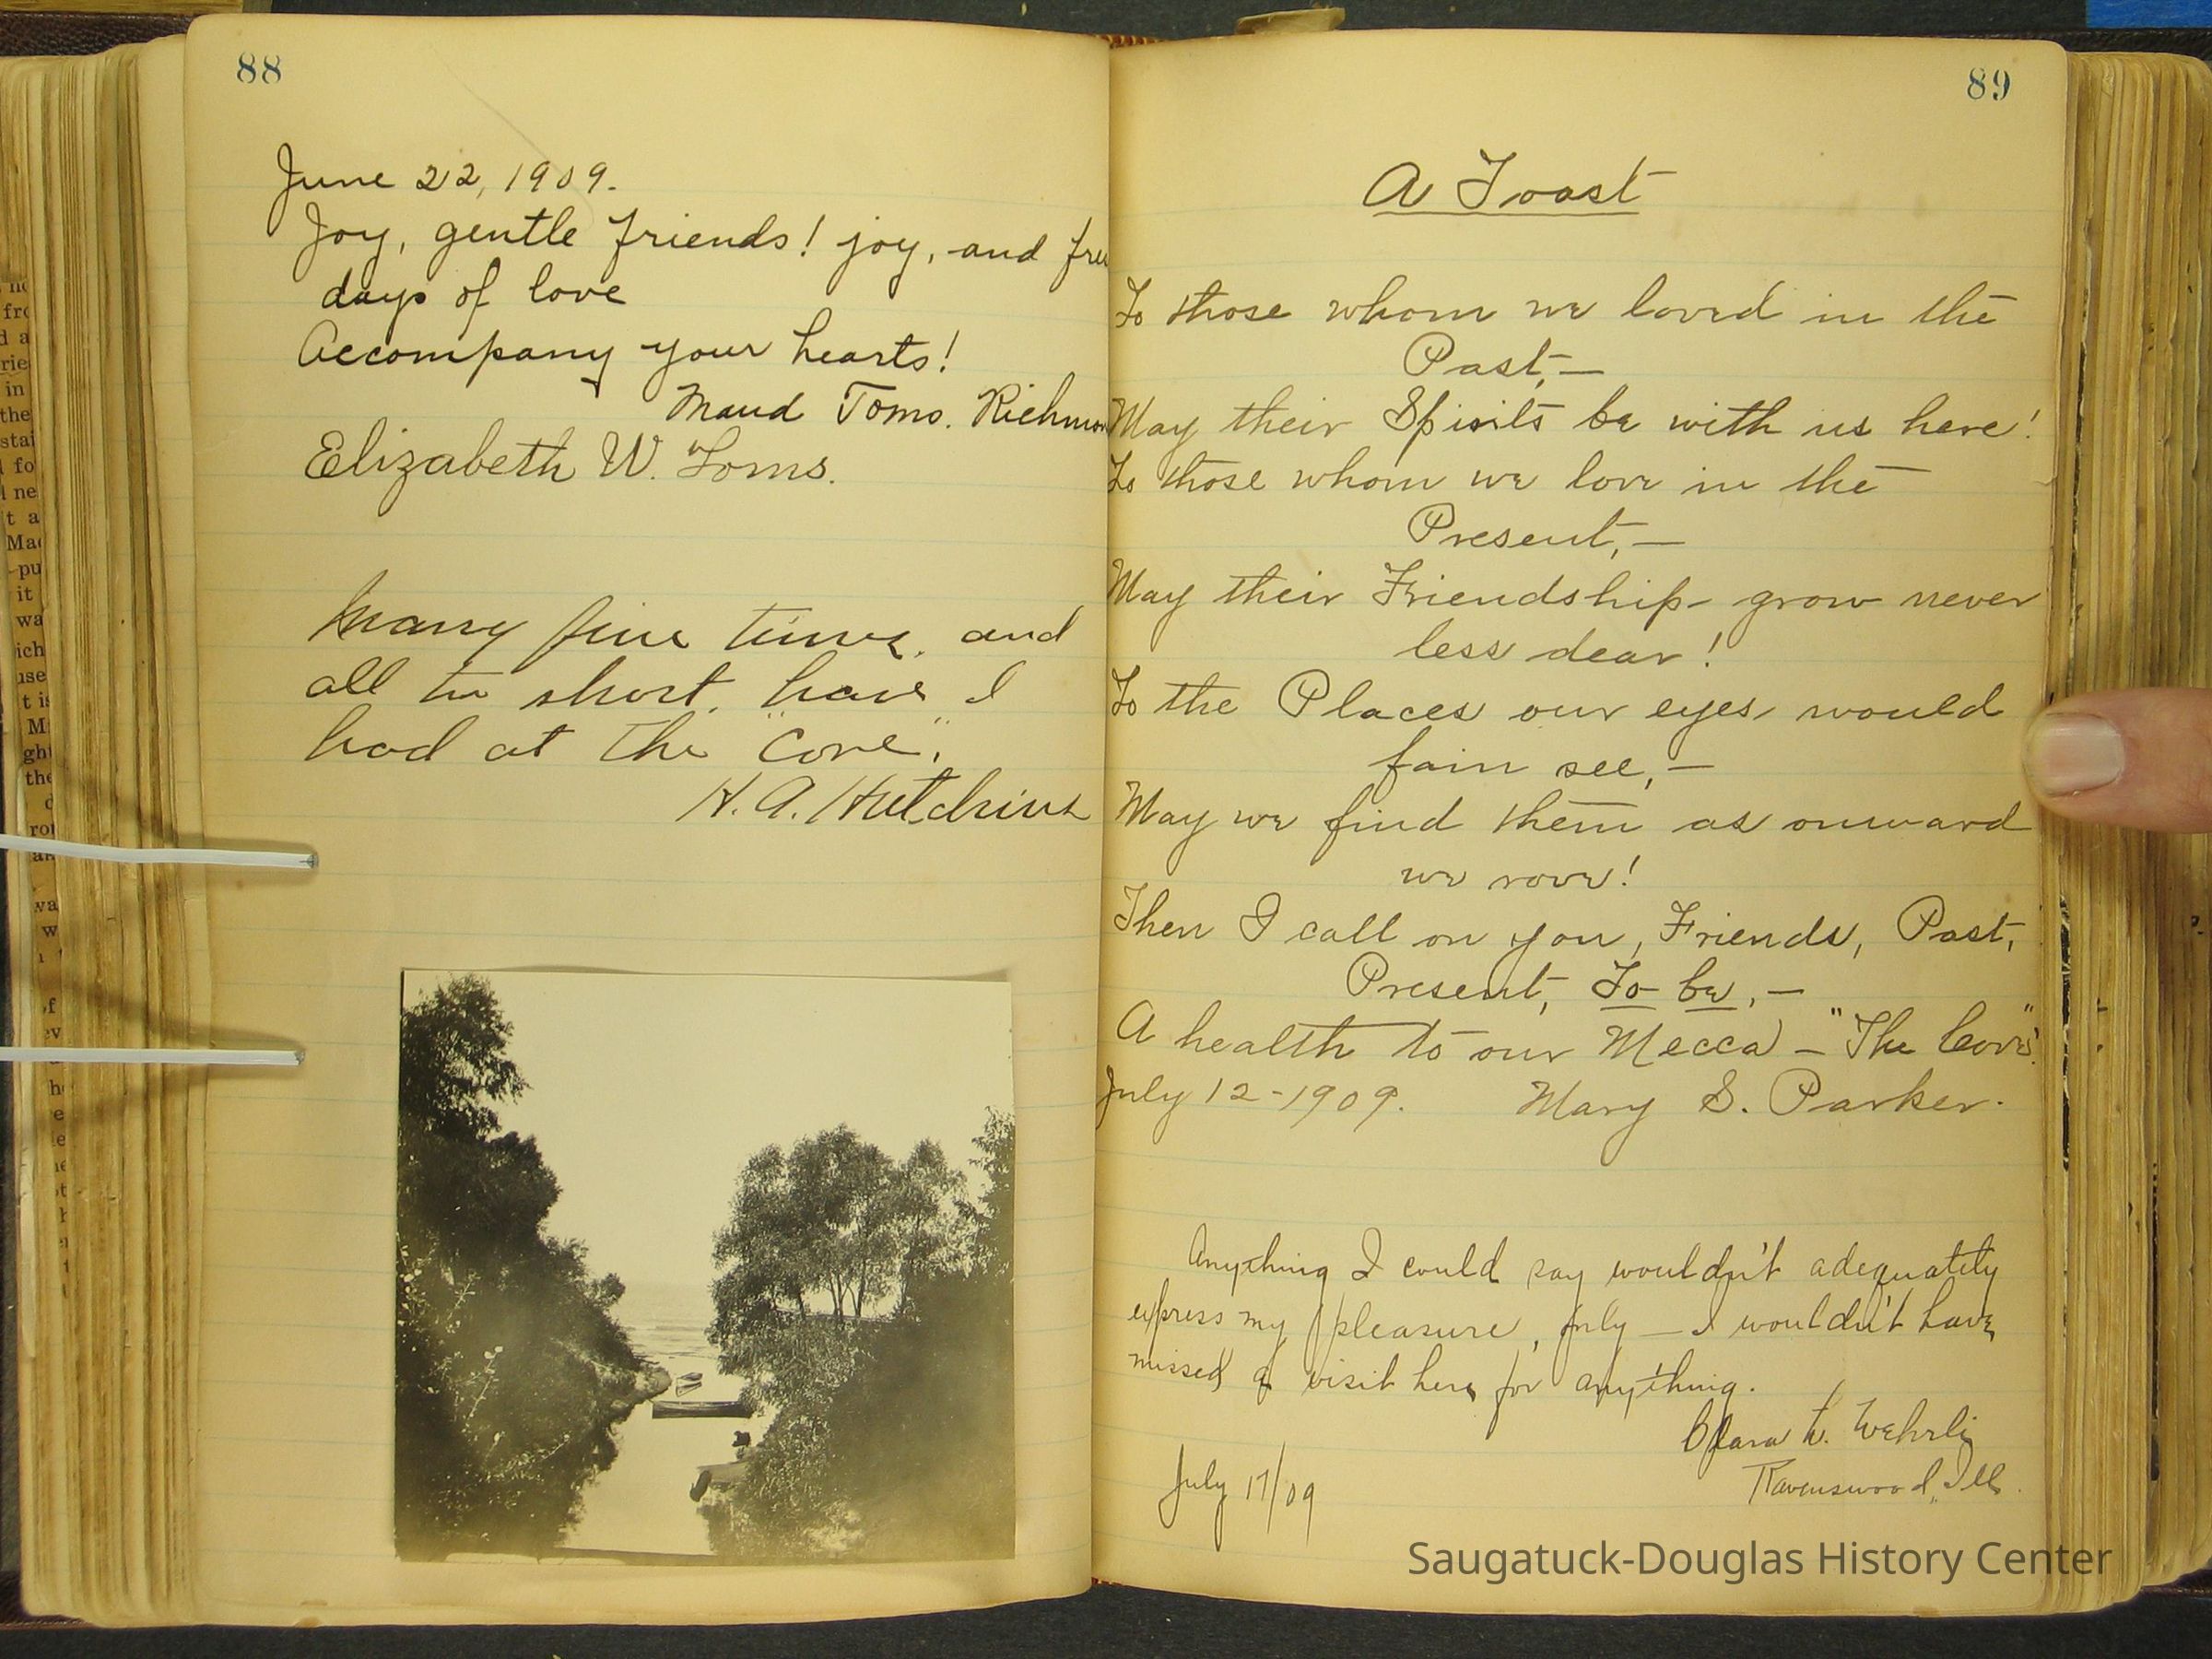 88
June 22, 1909.
Joy, gentle friends! joy, and
days of love
Accompany your hearts!
Maud Toms.
Elizabeth W. Toms.
Many fine times, and
all too short, have I
had at the "Cove".
H. A. Hutchins
89
A Toast
To those whom we loved in the
Past,—
May their Spirits be with us here!
To those whom we love in the
Present,—
May their Friendship grow never
less dear!
To the Places our eyes would
fain see,—
May we find them as onward
we rove!
Then I call on you, Friends, Past,
Present, To be,—
A health to our Mecca — "The Cove".
July 12-1909. Mary S. Parker.
Anything I could say wouldn't adequately
express my pleasure, only — I wouldn't have
missed a visit here for anything.
Clara W. Wehrli
Ravenswood, Ill.
July 17/09
Saugatuck-Douglas History Center